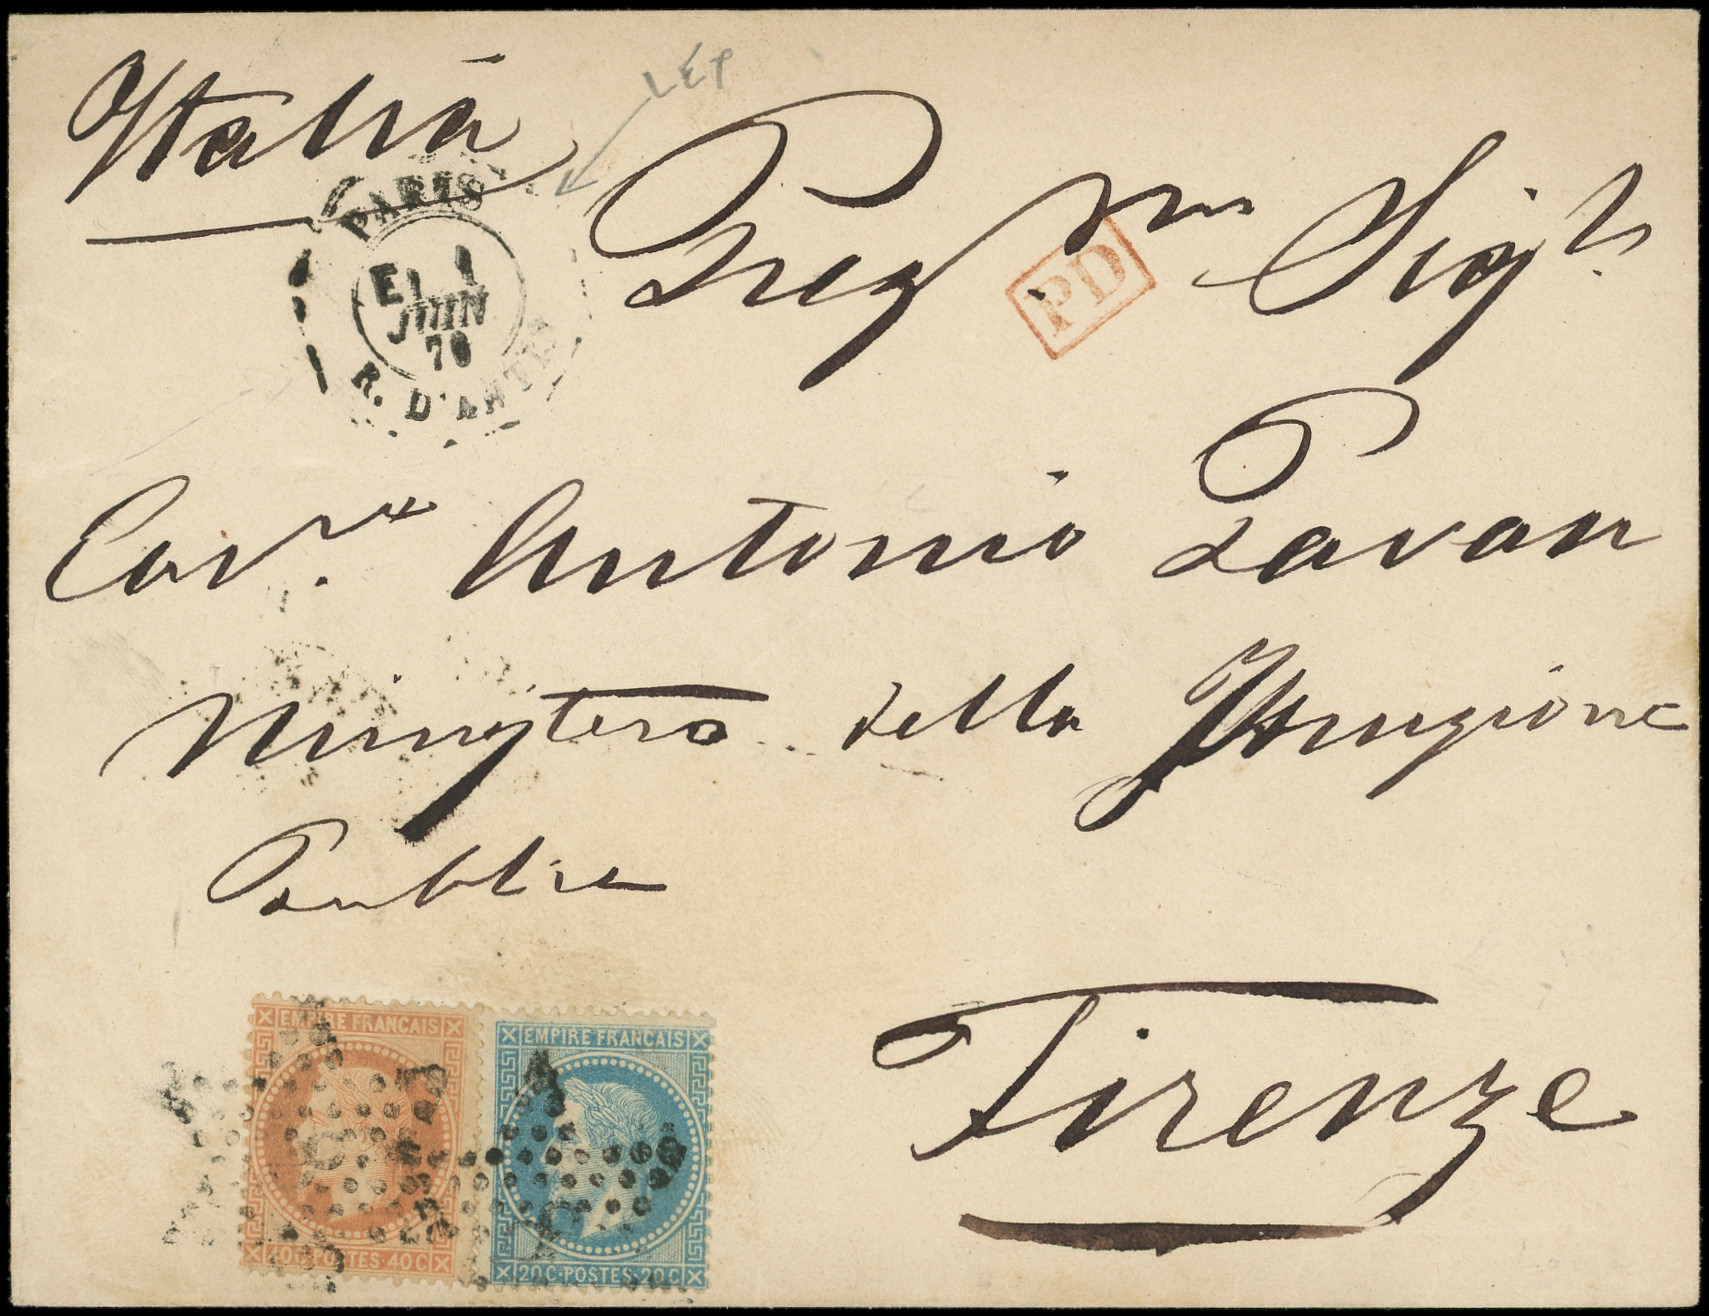 Italia
LEP
PARIS
E1 1
JUIN
70
R. D'ANTIN
Preg.mo Sigr.
PD
Cavre. Antonio Pavan
Ministero della Istruzione
Pubblica
Firenze
EMPIRE FRANCAIS
40C·POSTES·40C
EMPIRE FRANCAIS
20C·POSTES·20C